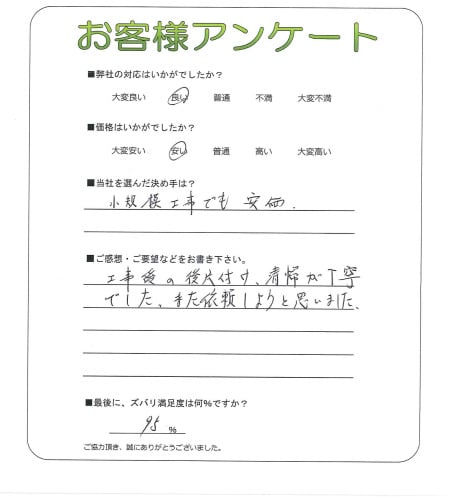 お客様アンケート
■弊社の対応はいかがでしたか？
大変良い 良い 普通 不満 大変不満
■価格はいかがでしたか？
大変安い 安い 普通 高い 大変高い
■当社を選んだ決め手は？
小規模工事でも安価.
■ご感想・ご要望などをお書き下さい。
工事後の後片付け、清掃が丁寧
でした、また依頼しようと思いました、
■最後に、ズバリ満足度は何％ですか？
95 ％
ご協力頂き、誠にありがとうございました。